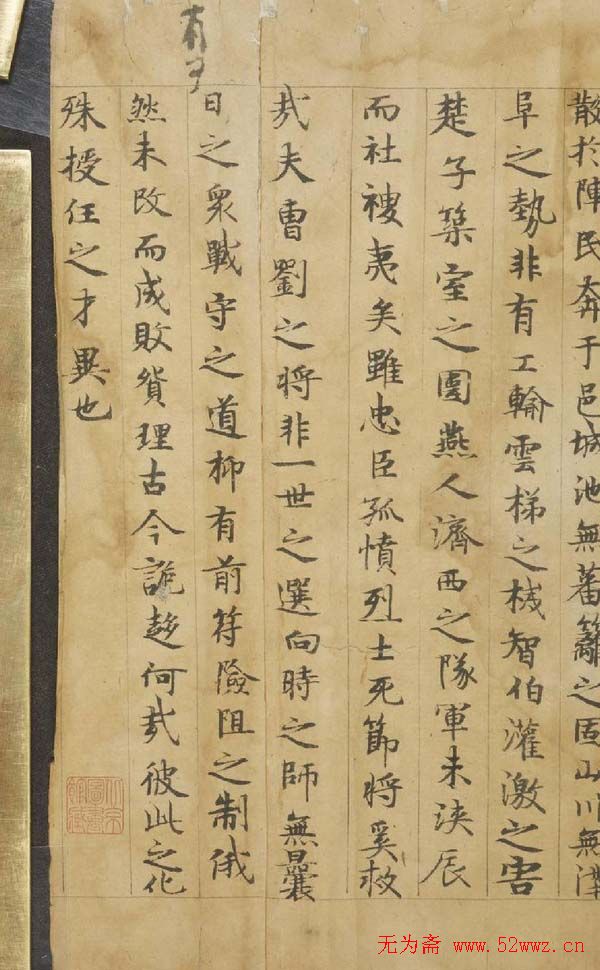 散於陣民奔于邑城池無蕃籬之固山川無溝
阜之勢非有工輸雲梯之械智伯灌激之害
楚子築室之圍燕人濟西之隊軍未浹辰
而社禝夷矣雖忠臣孤憤烈士死節將奚救
哉夫曹劉之將非一世之選向時之師無曩
日之衆戰守之道抑有前符險阻之制俄
然未改而成敗貿理古今詭趍何哉彼此之化
殊授任之才異也
无为斋 www.52wwz.cn